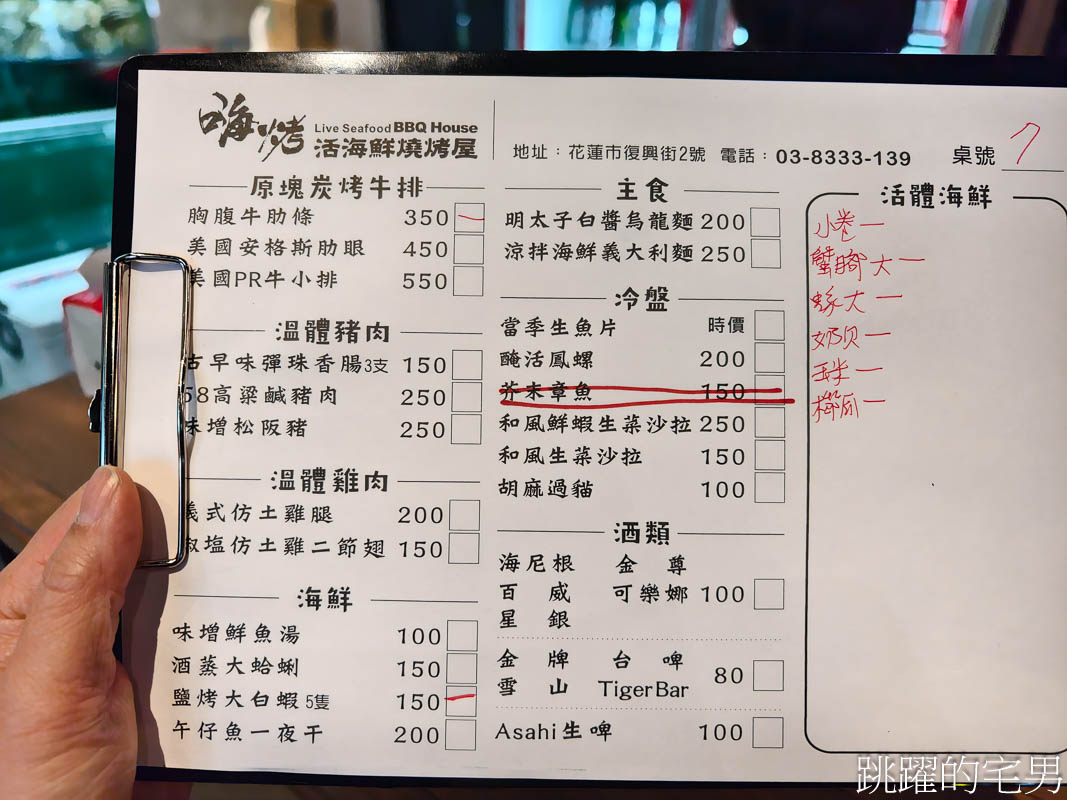 嗨烤 Live Seafood BBQ House
活海鮮燒烤屋
地址：花蓮市復興街2號 電話：03-8333-139 桌號 7
原塊炭烤牛排
胸腹牛肋條 350 一
美國安格斯肋眼 450
美國PR牛小排 550
溫體豬肉
古早味彈珠香腸3支 150
58高粱鹹豬肉 250
味增松阪豬 250
溫體雞肉
義式仿土雞腿 200
椒塩仿土雞二節翅 150
海鮮
味增鮮魚湯 100
酒蒸大蛤蜊 150
鹽烤大白蝦 5隻 150 一
午仔魚一夜干 200
主食
明太子白醬烏龍麵 200
涼拌海鮮義大利麵 250
冷盤
當季生魚片 時價
醃活鳳螺 200
芥末章魚 150
和風鮮蝦生菜沙拉 250
和風生菜沙拉 150
胡麻過貓 100
酒類
海尼根 金尊
百威 可樂娜 100
星銀
金牌 台啤
雪山 TigerBar 80
Asahi生啤 100
活體海鮮
小卷一
蟹腳大一
蚵大一
奶貝一
玉米一
櫛瓜一
跳躍的宅男